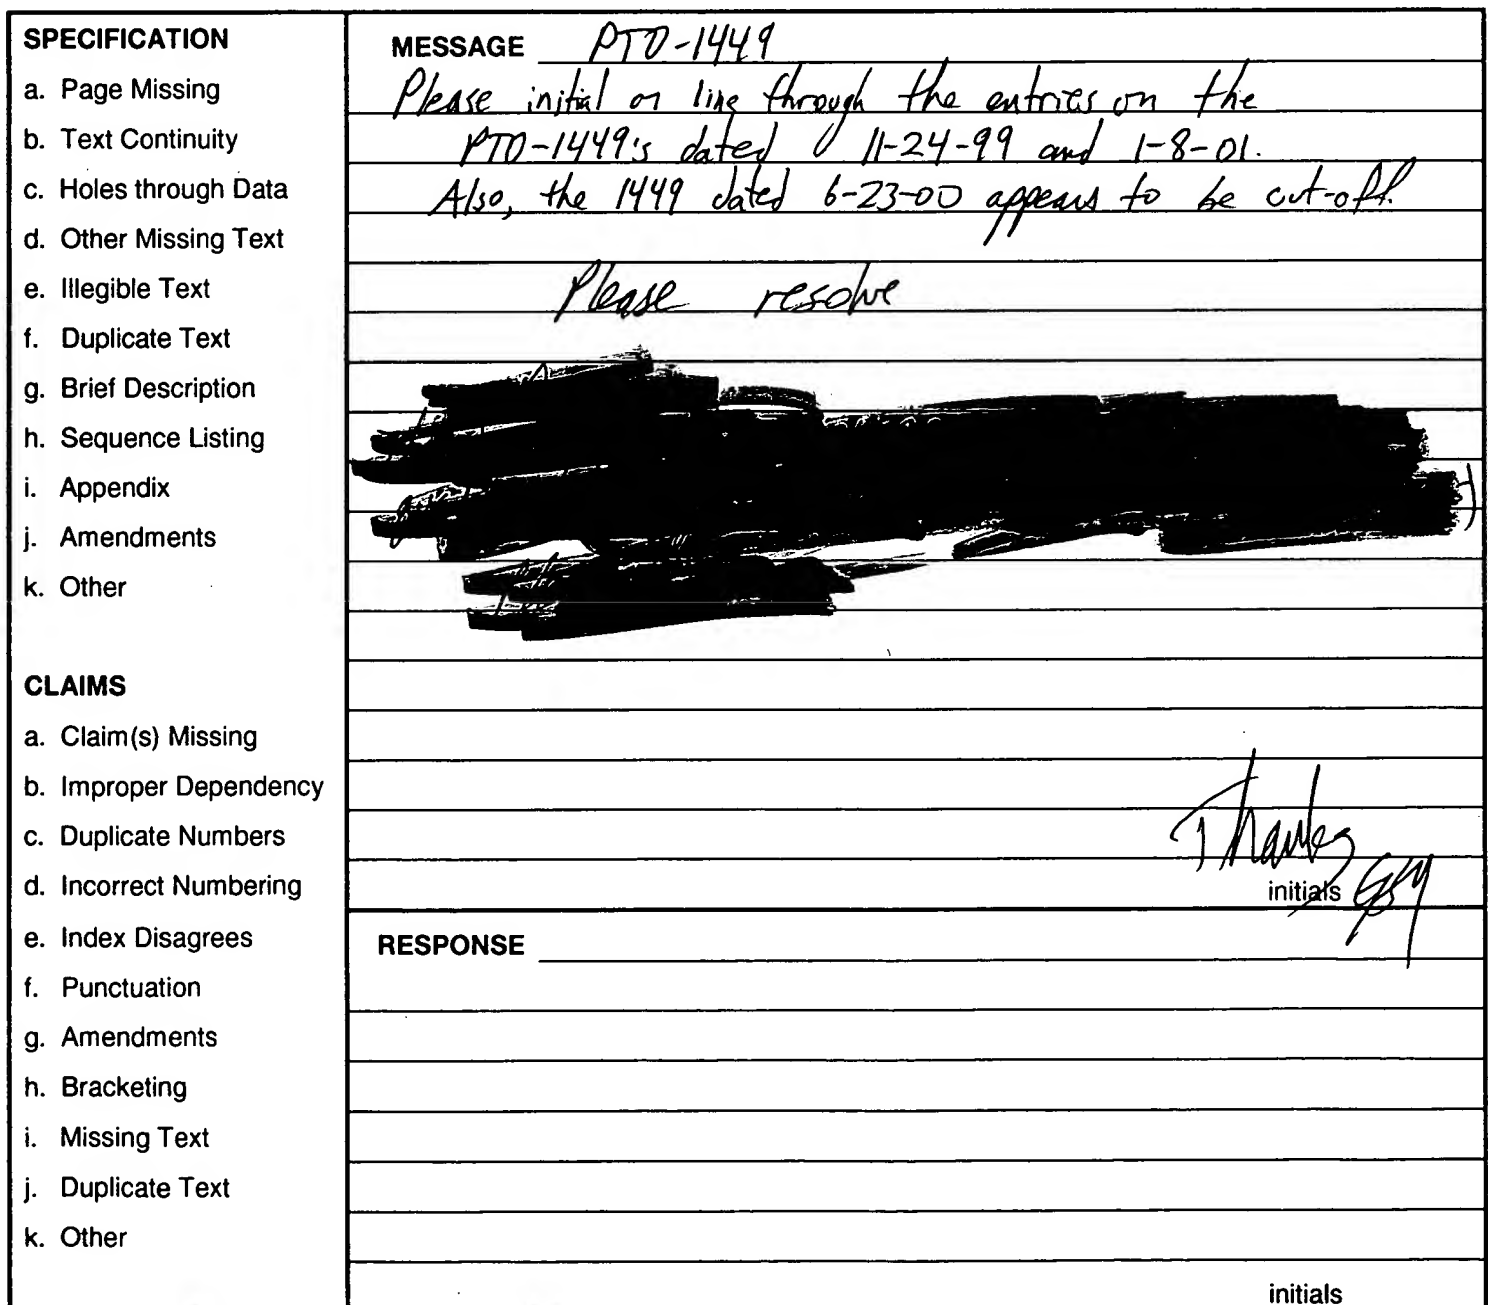 SPECIFICATION
a. Page Missing
b. Text Continuity
c. Holes through Data
d. Other Missing Text
e. Illegible Text
f. Duplicate Text
g. Brief Description
h. Sequence Listing
i. Appendix
j. Amendments
k. Other
CLAIMS
a. Claim(s) Missing
b. Improper Dependency
c. Duplicate Numbers
d. Incorrect Numbering
e. Index Disagrees
f. Punctuation
g. Amendments
h. Bracketing
i. Missing Text
j. Duplicate Text
k. Other
MESSAGE PTO-1449
Please initial or line through the entries on the
PTO-1449's dated 11-24-99 and 1-8-01.
Also, the 1449 dated 6-23-00 appears to be cut-off.
Please resolve
Thanks
initials
RESPONSE
initials